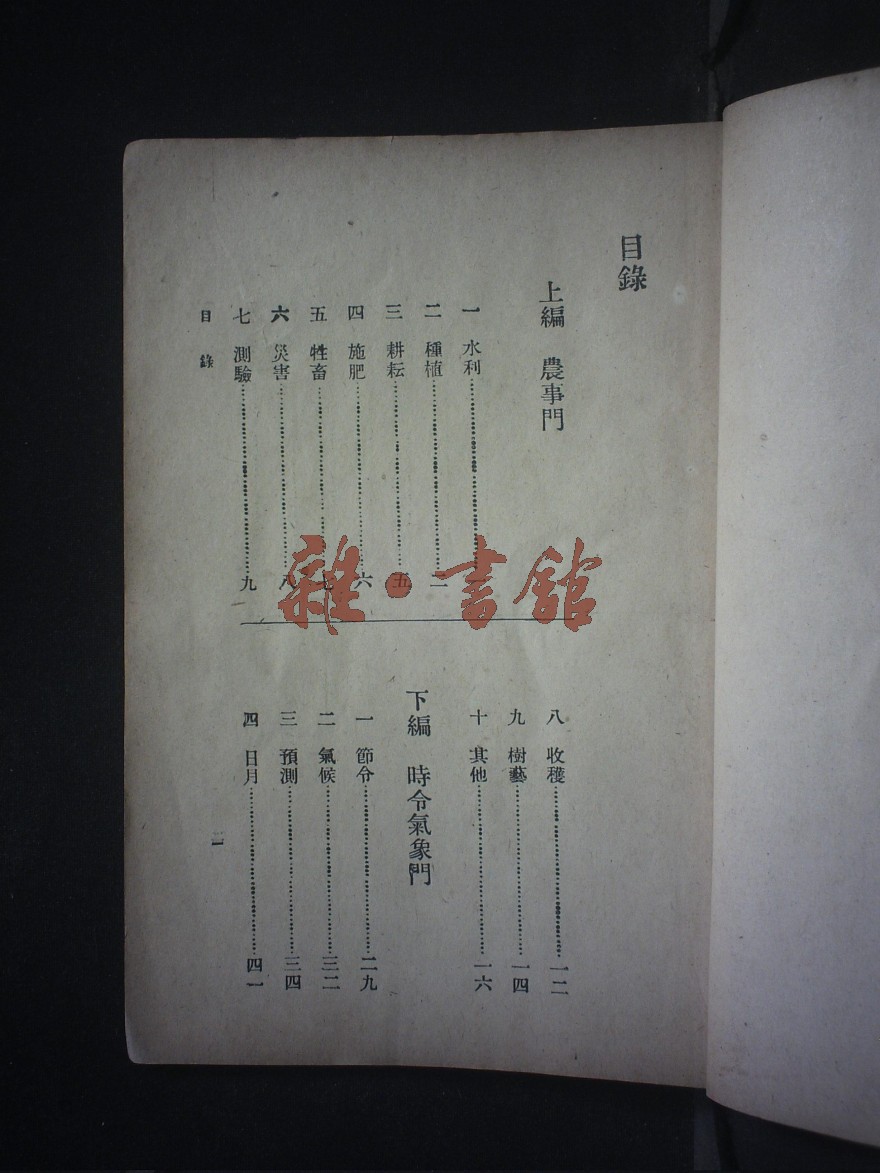 目錄
上編 農事門
一 水利
二 種植……二
三 耕耘……五
四 施肥……六
五 牲畜……七
六 災害……八
七 測驗……九
八 收穫……一二
九 樹藝……一四
十 其他……一六
下編 時令氣象門
一 節令……二九
二 氣候……三二
三 預測……三四
四 日月……四一
目錄
二
雜·書館